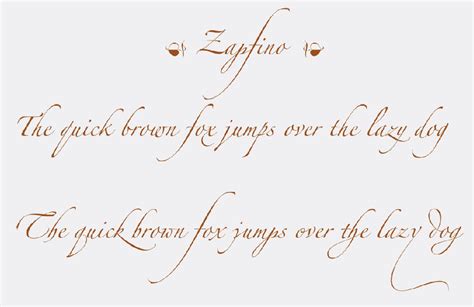 Zapfino
The quick brown fox jumps over the lazy dog
The quick brown fox jumps over the lazy dog